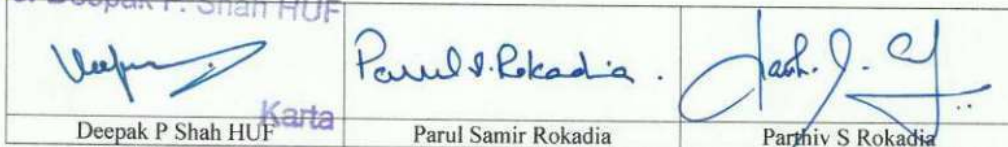 Deepak P. Shah HUF
Parul S. Rokadia.
Karta
Deepak P Shah HUF
Parul Samir Rokadia
Parthiv S Rokadia